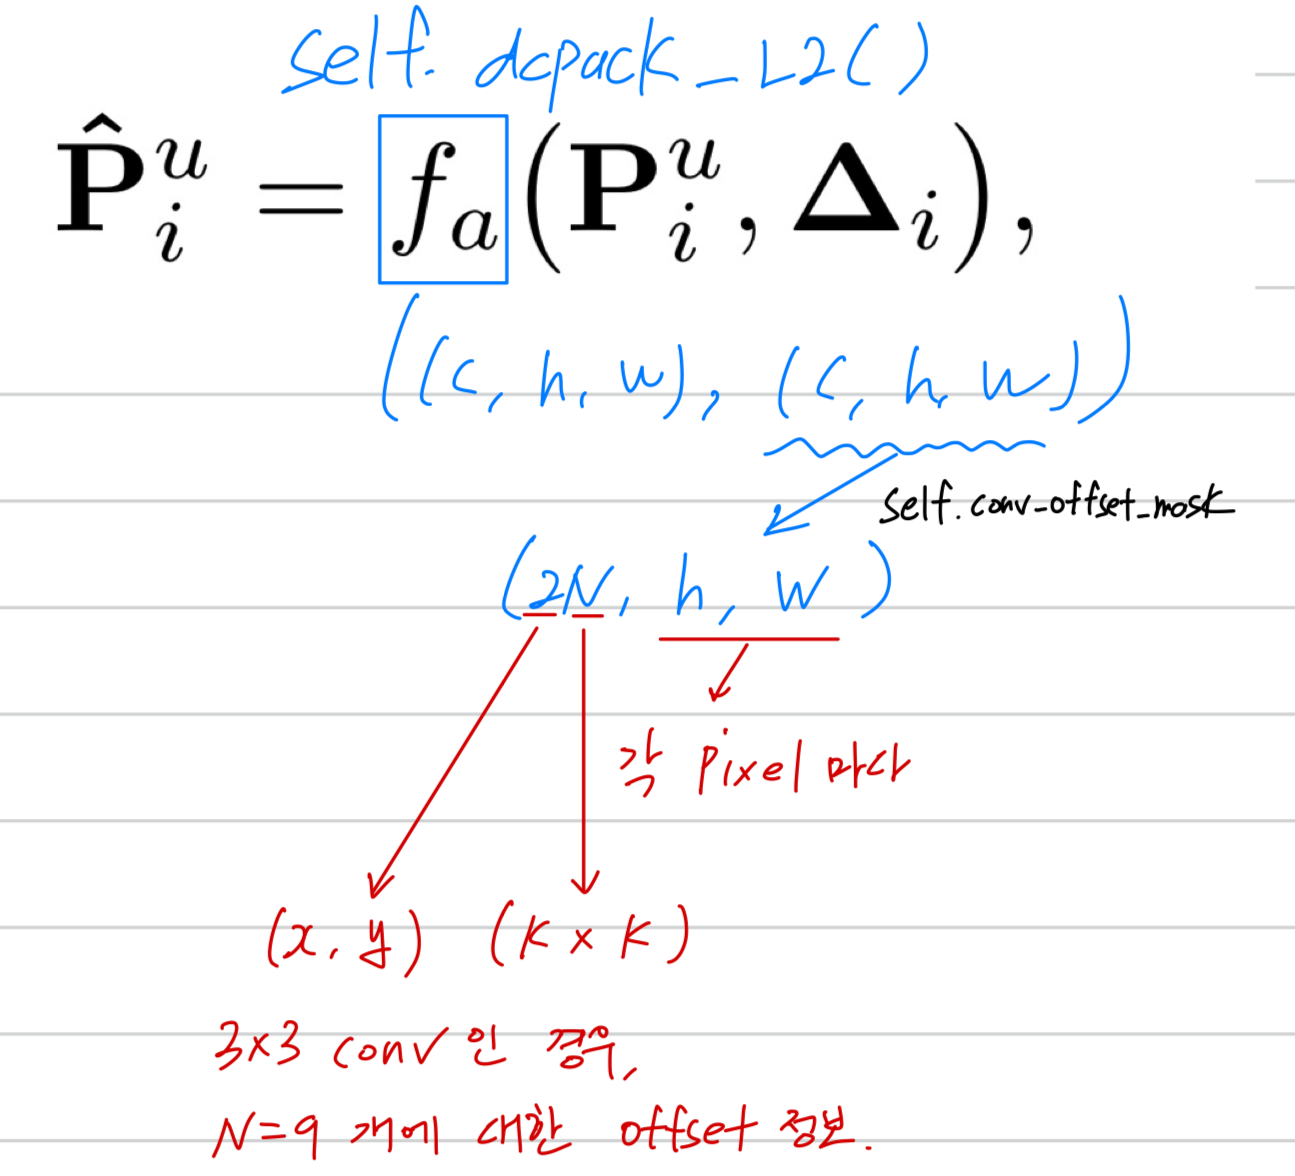 self. dcpack_L2()
P̂ᵢᵘ = fₐ(Pᵢᵘ, Δᵢ),
((c, h, w), (c, h, w))
self.conv_offset_mask
(2N, h, w)
각 pixel 마다
(x, y) (K × K)
3×3 conv 인 경우,
N=9 개에 대한 offset 정보.